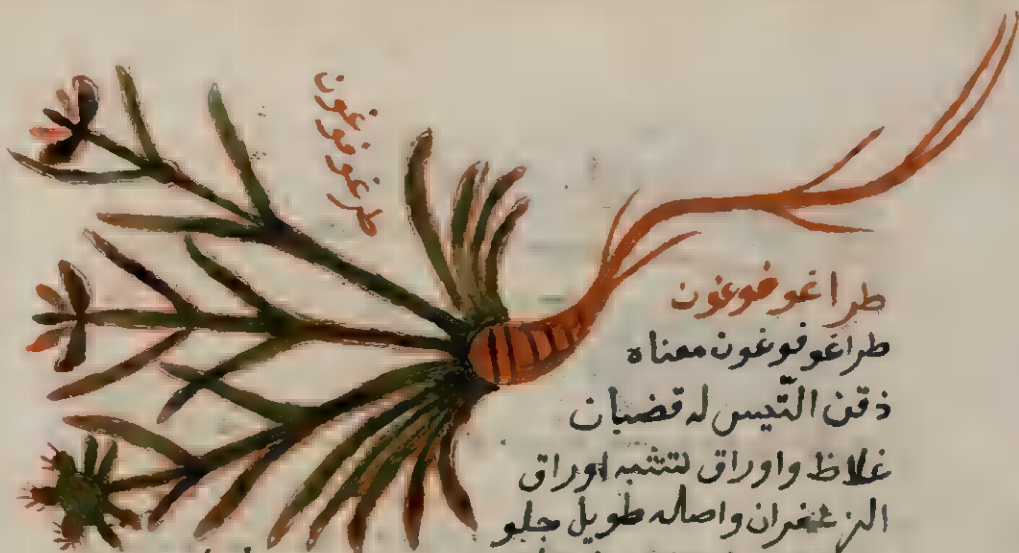 طرغوفوغون
طراغوفوغون
طراغوفوغون معناه
ذقن التّيس له قضبان
غلاظ واوراق لتشبه اوراق
الزعفران واصله طويل حلو